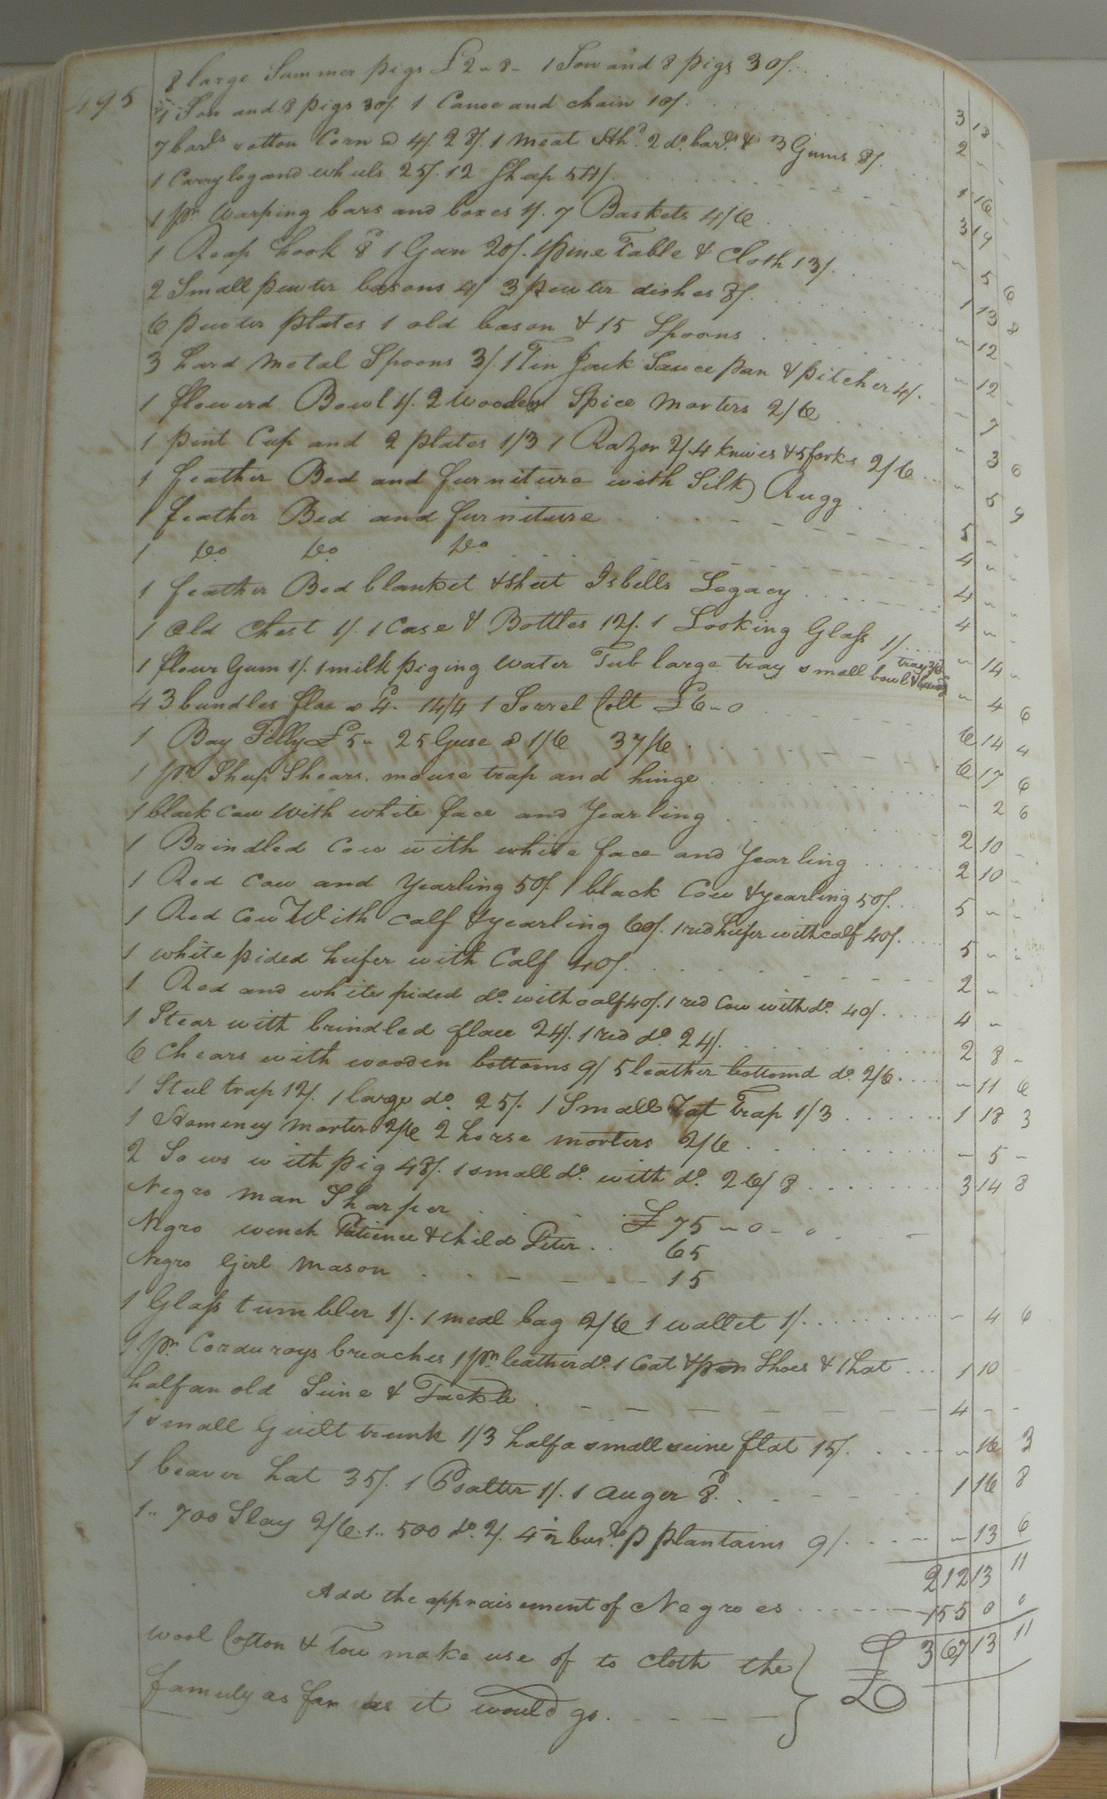 495
8 large Summer pigs £2-8- 1 Sow and 8 pigs 30/. 3 18 -
1 Sow and 8 pigs 30/. 1 Canoe and chain 10/. 2 - -
7 barls rotten Corn @ 4/. 28/. 1 meat 2 do. barls & 3 Gums 8/. 1 16 -
1 Carrylog and wheels 25/. 12 Sheap 54/. 3 19
1 pr. Warping bars and boxes 1/. 7 Baskets 4/6 - 5 6
1 Reap hook 8d 1 Gun 20/. 1 pine Table & Cloth 13/. 1 13 8
2 Small pewter basons 4/ 3 pewter dishes 8/. - 12 -
6 pewter plates 1 old bason & 15 Spoons - 12
3 hard metal Spoons 3/. 1 Tin Sauce pan & pitcher 4/. - 7 -
1 flowerd Bowl 1/. 2 Wooden Spice morters 2/6 - 3 6
1 pint Cup and 2 plates 1/3 1 Razor 2/. 4 knives & 5 forks 2/6 - 5 9
1 feather Bed and furniture with Silk Rugg 5 - -
1 feather Bed and furniture 4 - -
1 Do. Do. Do. 4 - -
1 feather Bed blanket & Sheet Isbells Legacy 4 - -
1 Old Chest 1/. 1 Case & Bottles 12/. 1 Looking Glass 1/. - 14 -
1 flour Gum 1/. 1 milk piging water Tub large tray small bowl tray - 4 6
43 bundles flax @ 4d. 14/4 1 Sorrel Colt £6-0 6 14 4
1 Bay Filly £5- 25 Guse @ 1/6 37/6 6 17 6
1 pr. Sheep Shears. mouse trap and hinge - 2 6
1 black cow with white face and Yearling 2 10 -
1 Brindled Cow with white face and Yearling 2 10 -
1 Red Cow and Yearling 50/. 1 black Cow & yearling 50/. 5 - -
1 Red Cow With Calf & yearling 60/. 1 red heifer with calf 40/. 5 - -
1 white pided heifer with Calf 40/. 2 -
1 Red and white pided do. with calf 40/. 1 red Cow with do. 40/. 4 -
1 Stear with brindled face 24/. 1 red do. 24/. 2 8 -
6 Chears with wooden bottoms 9/ 5 leather bottomd do. 2/6. - 11 6
1 Steel trap 12/. 1 large do. 25/. 1 Small Trap 1/3 1 18 3
1 Homeney Morter 2/6 2 horse morters 2/6 - 5 -
2 Sows with pig 48/. 1 small do. with do. 26/8 3 14 8
Negro man Sharper £75-0-0
Negro wench Patience & Child Peter 65
Negro Girl Mason 15
1 Glass tumbler 1/. 1 meal bag 2/6 1 wallet 1/. - 4 6
1 pr. Corduroys breaches 1 pr. leather do. 1 Coat & Shoes & 1 hat 1 10
half an old Seine & Tackle 4 - -
1 small Guilt trunk 1/3 half a small seine flat 15/. - 16 3
1 beaver hat 35/. 1 Psalter 1/. 1 auger 8d. 1 16 8
1.. 700 Slay 2/6. 1.. 500 do. 2/. 4½ bus. plantains 9/. - 13 6
212 13 11
Add the appraisement of Negroes 155 0 0
£ 367 13 11
Wool Cotton & Tow make use of to cloth the
family as far as it would go.